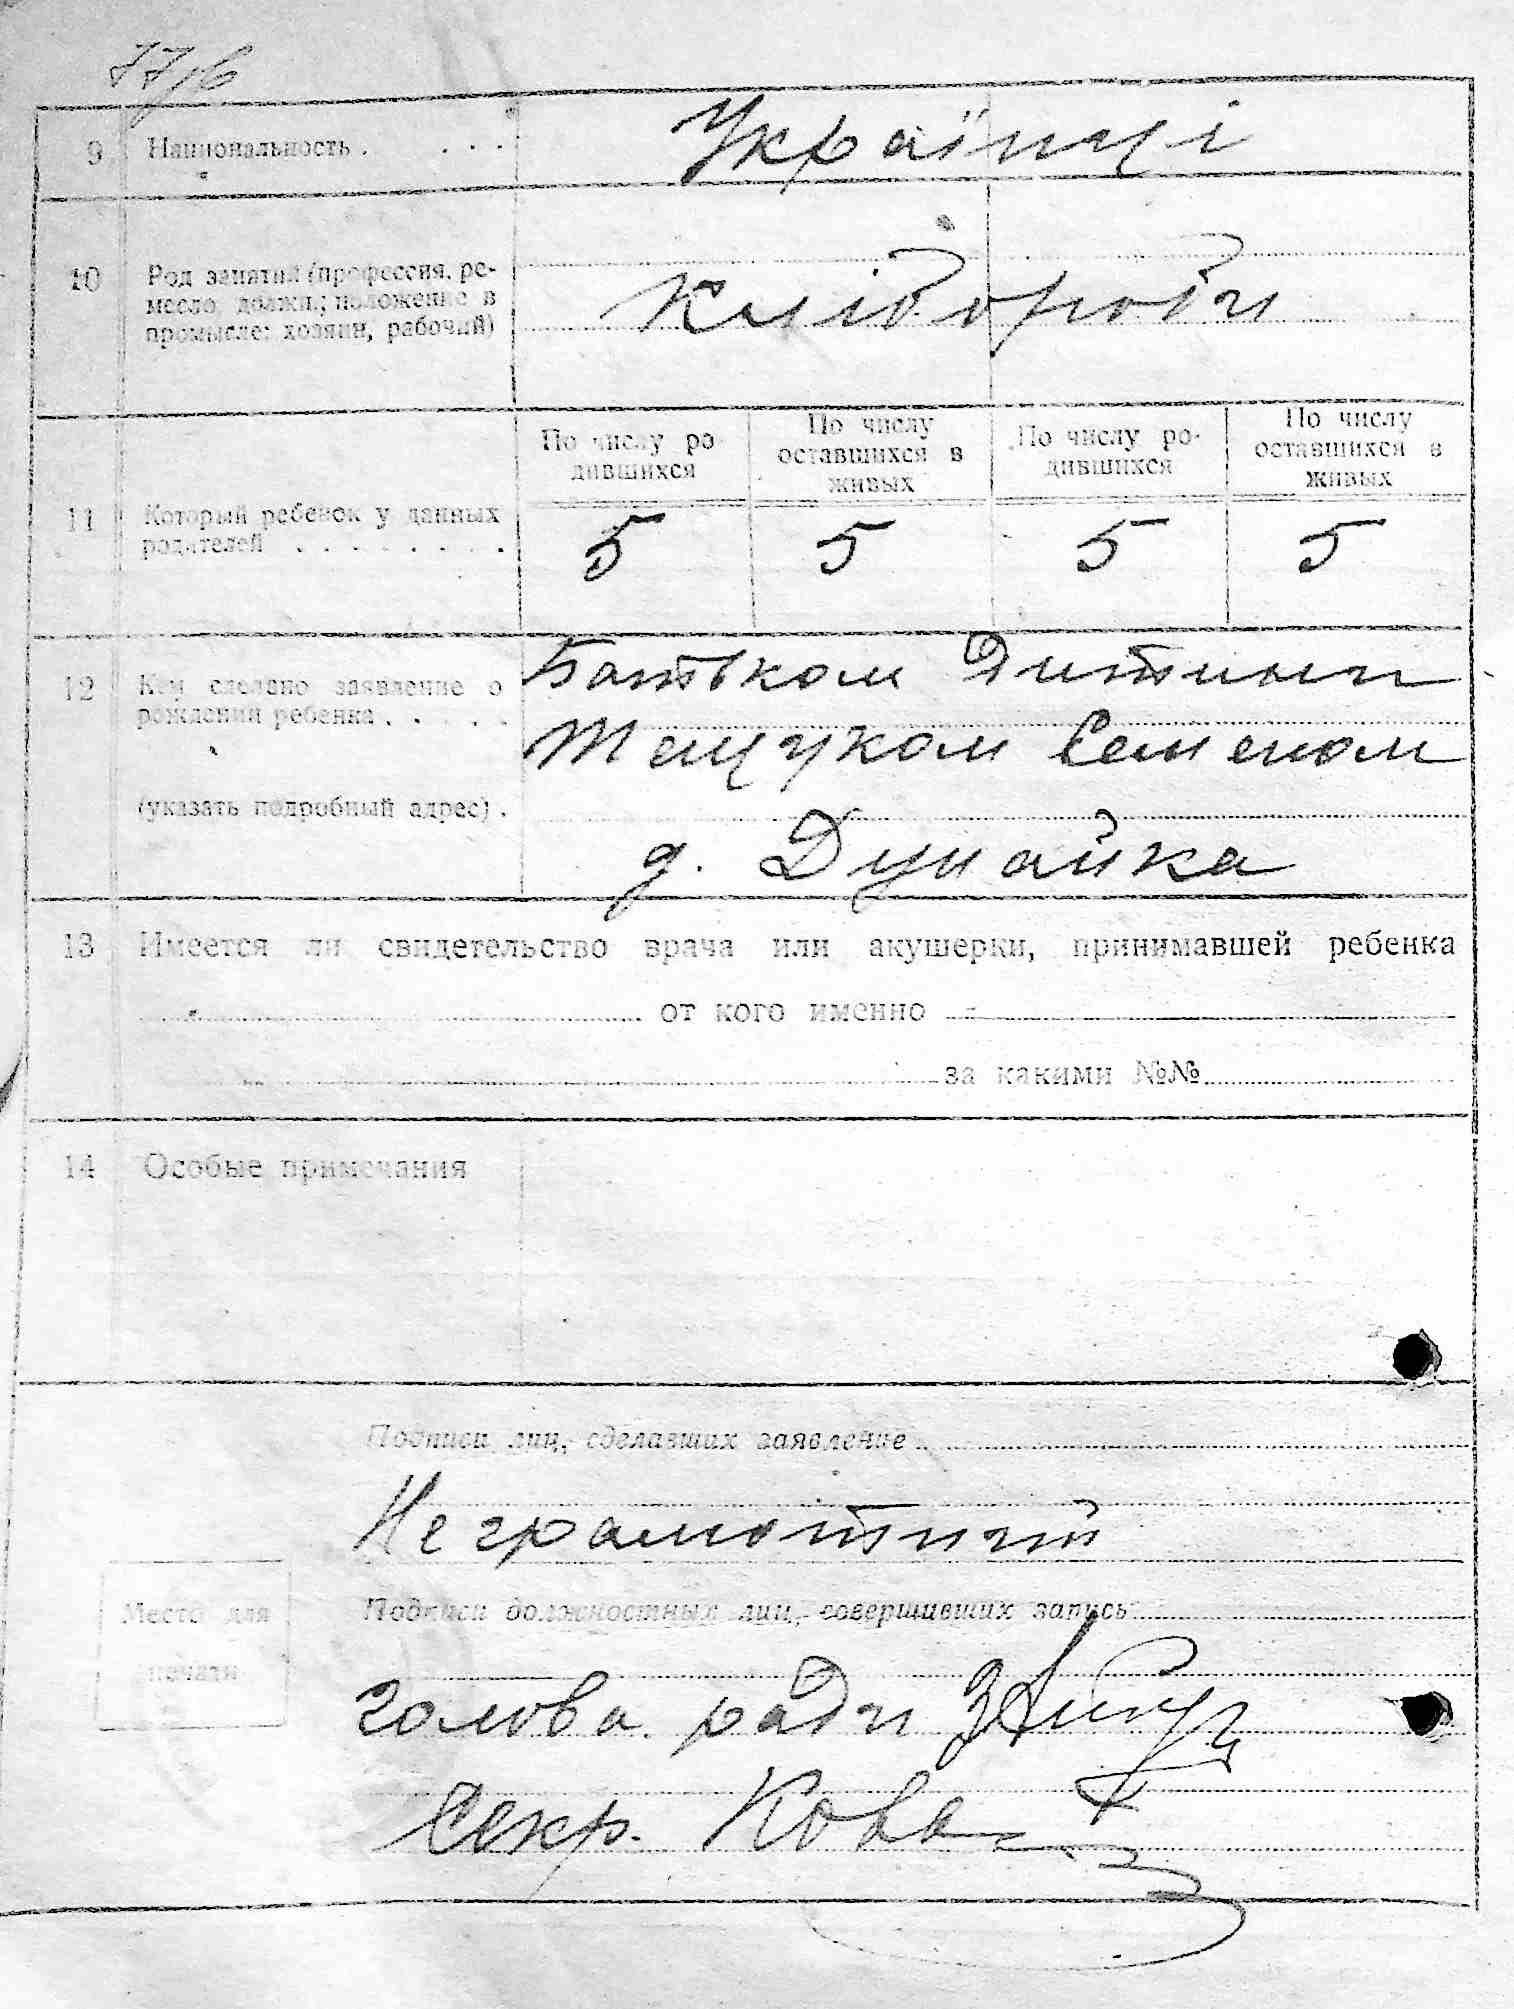 77/б
9 Национальность . . . . Українці
10 Род занятий (профессия, ре-
месло, должн.; положение в
промысле: хозяин, рабочий)
Хлібороби
По числу ро-
дившихся
По числу
оставшихся в
живых
По числу ро-
дившихся
По числу
оставшихся в
живых
11 Который ребенок у данных
родителей . . . . . . . .
5 5 5 5
12 Кем сделано заявление о
рождении ребенка . . . . .
(указать подробный адрес) .
Батьком Дитини
Тащуком Семеном
д. Дунайка
13 Имеется ли свидетельство врача или акушерки, принимавшей ребенка
- от кого именно -
за какими №№
14 Особые примечания
Подписи лиц, сделавших заявление
Не грамотний
Место для
печати
Подписи должностных лиц, совершивших запись
голова ради
Секр.